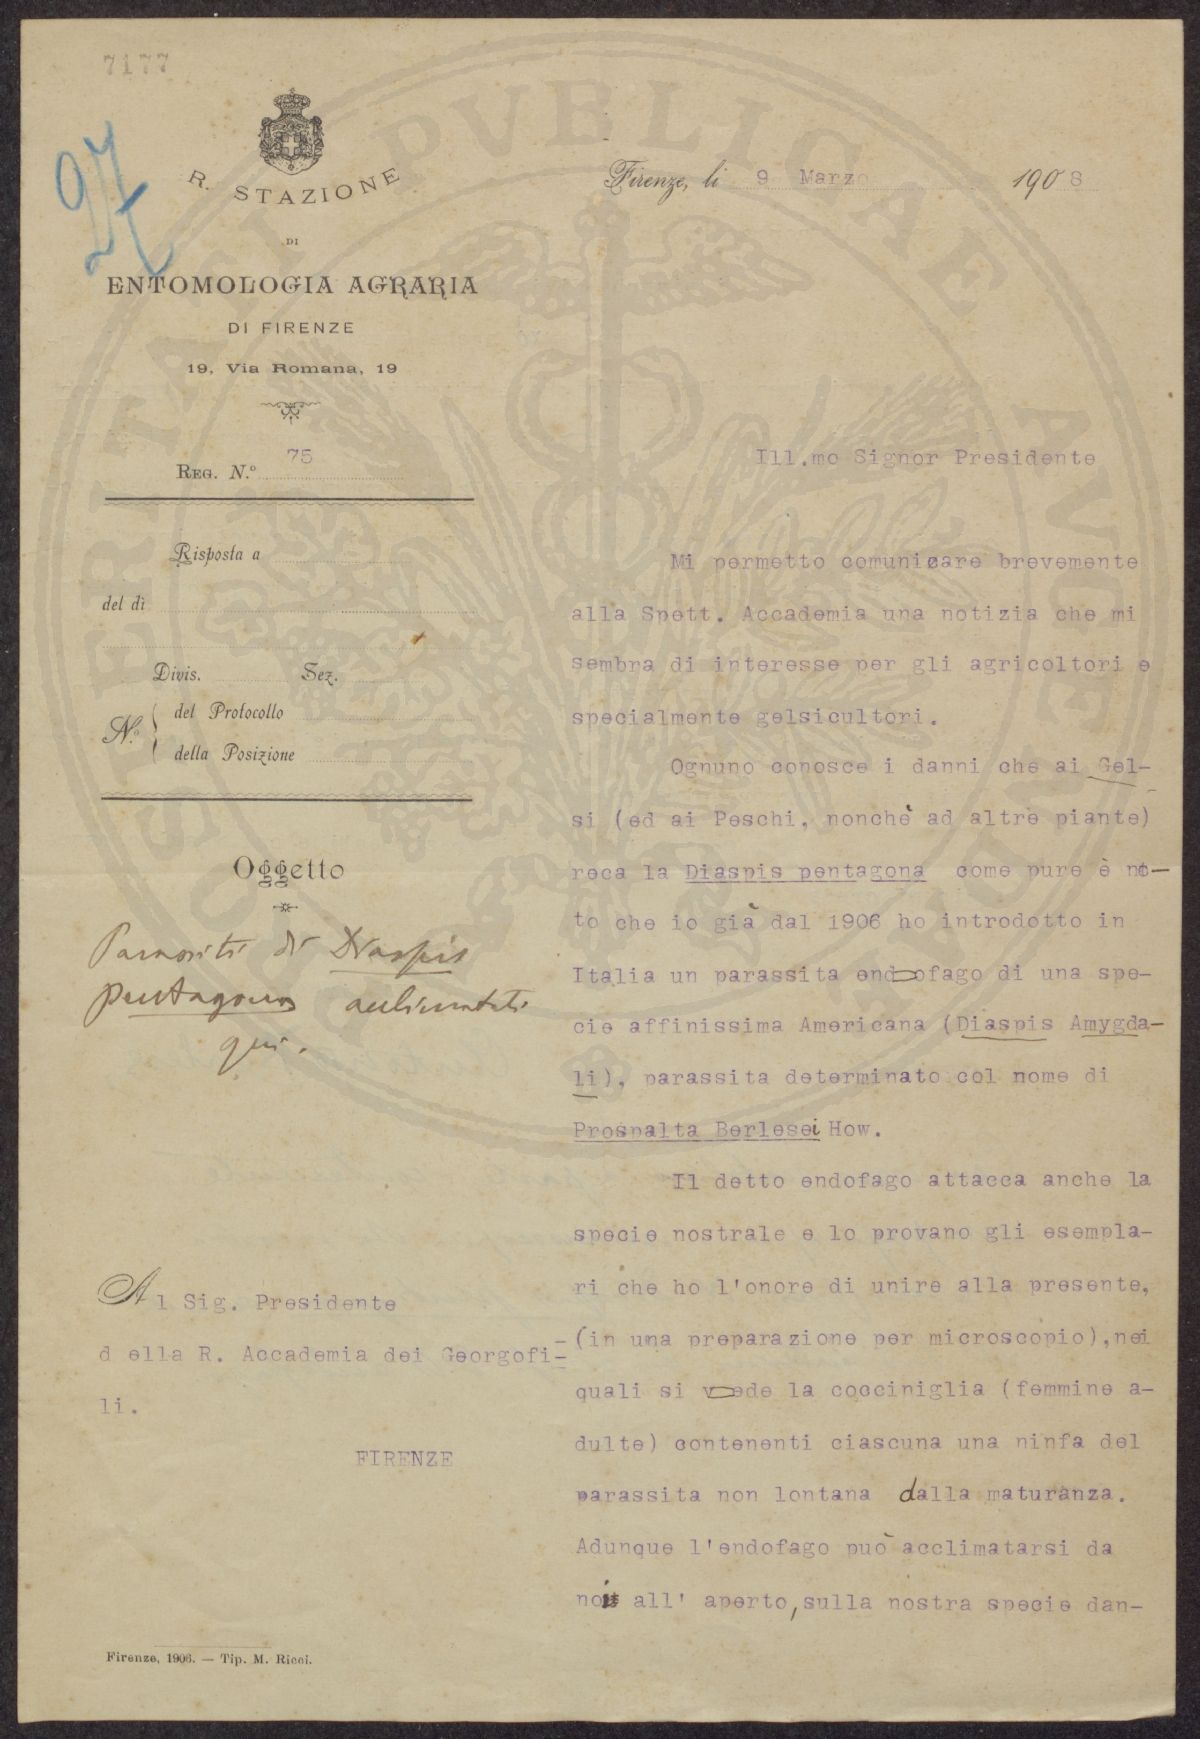 7177
27
R. STAZIONE
DI
ENTOMOLOGIA AGRARIA
DI FIRENZE
19, Via Romana, 19
REG. N.° 75
Risposta a
del dì
Divis. Sez.
N.° del Protocollo
della Posizione
Oggetto
Parassiti di Diaspis
pentagona acclimatati
qui.
Al Sig. Presidente
d ella R. Accademia dei Georgofi-
li.
FIRENZE
Firenze, 1906. — Tip. M. Ricci.
Firenze, li 9 Marzo 1908
Ill.mo Signor Presidente
Mi permetto comunicare brevemente
alla Spett. Accademia una notizia che mi
sembra di interesse per gli agricoltori e
specialmente gelsicultori.
Ognuno conosce i danni che ai Gel-
si (ed ai Peschi, nonchè ad altre piante)
reca la Diaspis pentagona come pure è no-
to che io già dal 1906 ho introdotto in
Italia un parassita endofago di una spe-
cie affinissima Americana (Diaspis Amygda-
li), parassita determinato col nome di
Prospalta Berlesei How.
Il detto endofago attacca anche la
specie nostrale e lo provano gli esempla-
ri che ho l'onore di unire alla presente,
(in una preparazione per microscopio),nei
quali si vede la cocciniglia (femmine a-
dulte) contenenti ciascuna una ninfa del
parassita non lontana dalla maturanza.
Adunque l'endofago può acclimatarsi da
noi all' aperto, sulla nostra specie dan-
SCSERITASI PVBLICAE AVGENDAE